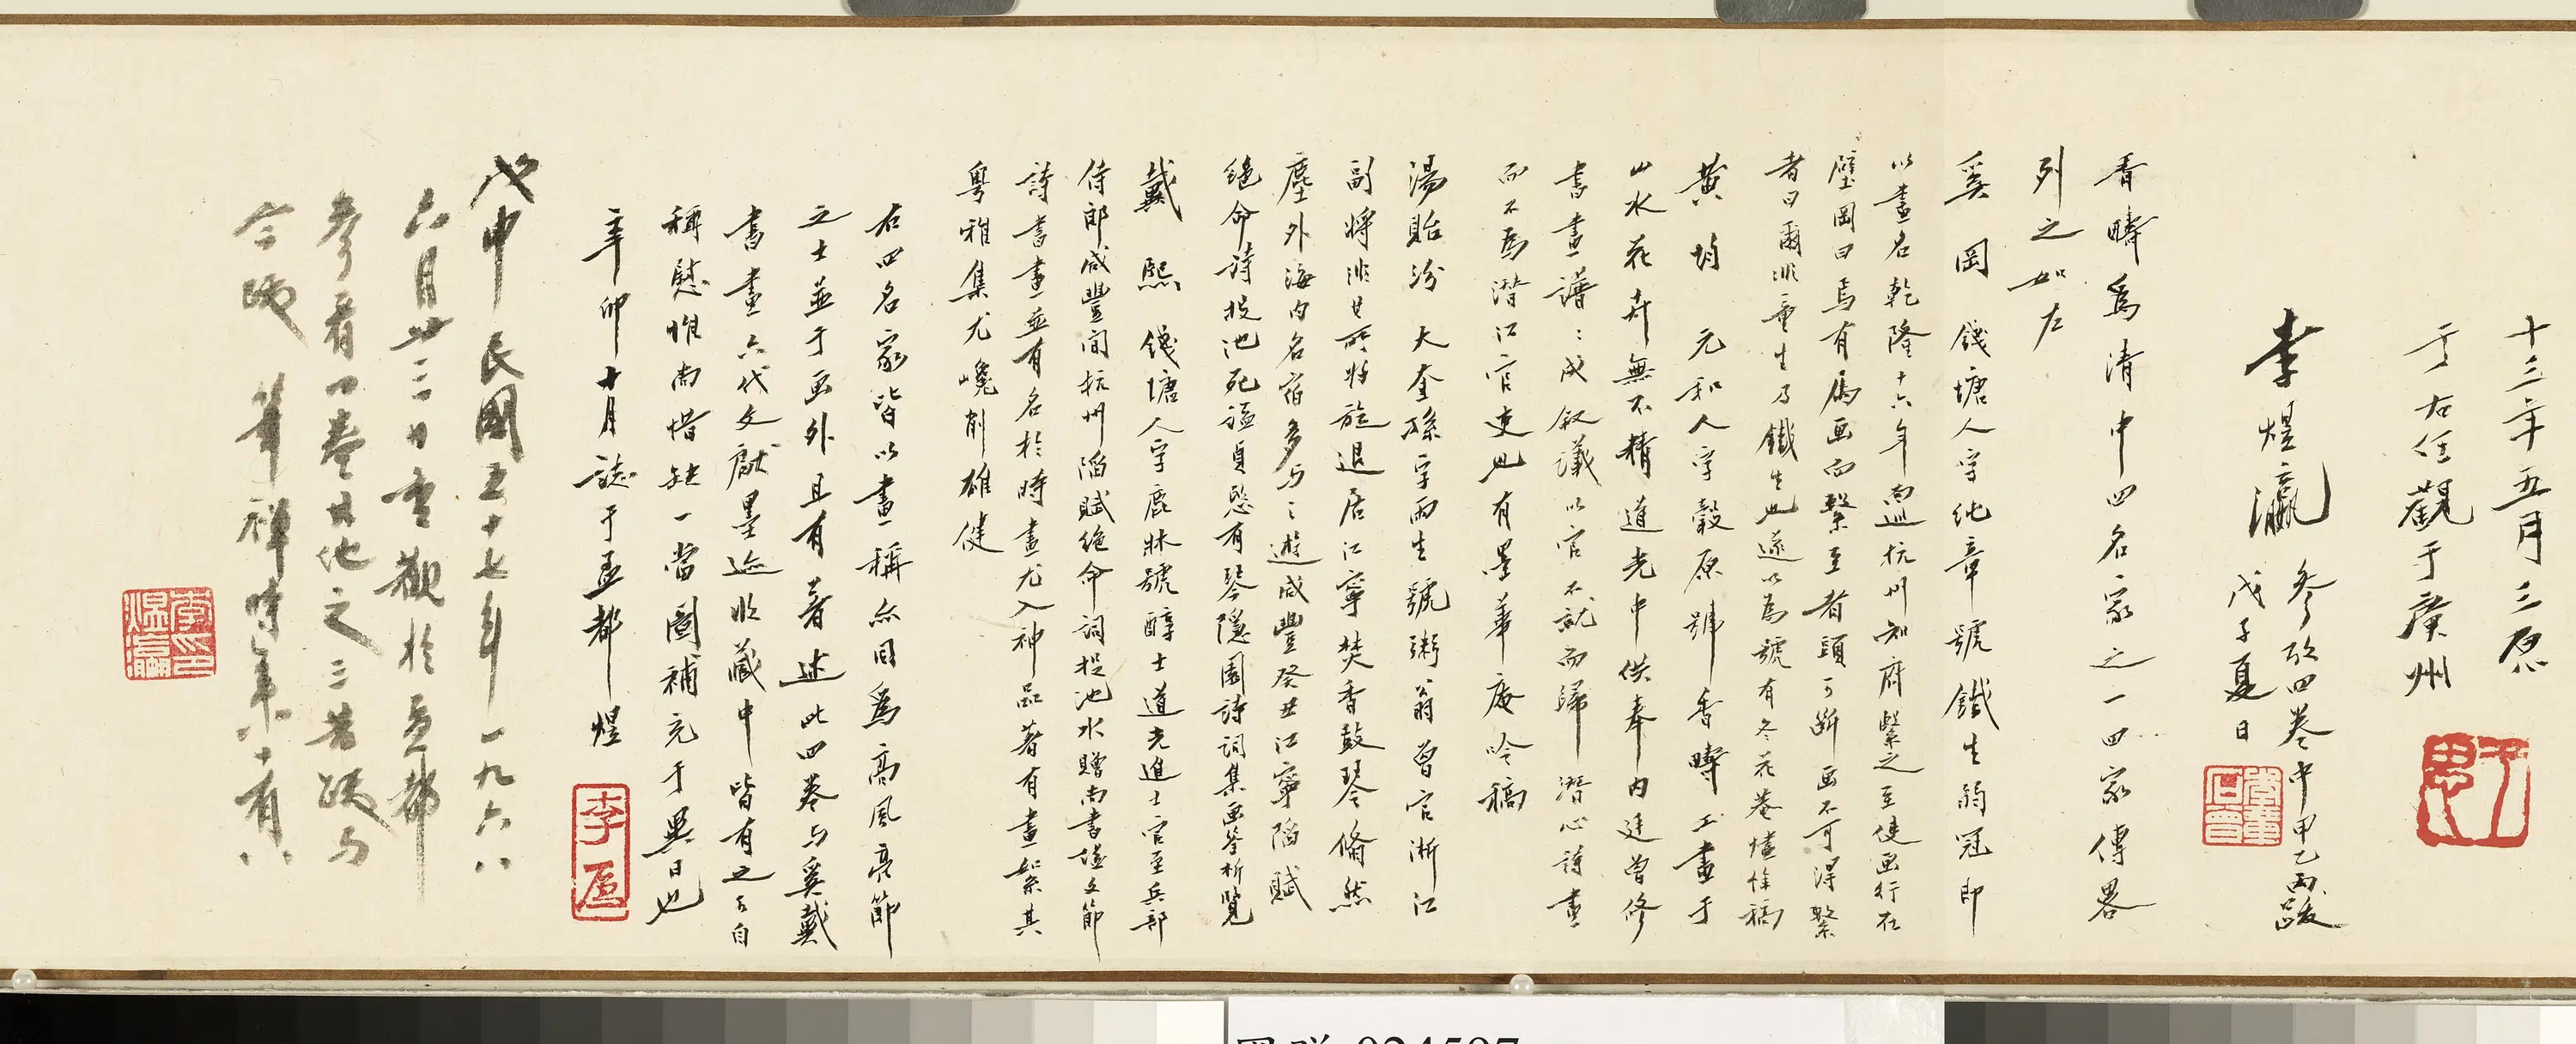 十三年五月三原
于右任觀于廣州
李煜瀛 參攷四卷中甲乙丙跋
戊子夏日
香疇為清中四名家之一四家傳畧
列之如左
奚岡 錢塘人字純章號鐵生弱冠即
以畫名乾隆十六年南巡杭州知府繫之至使畫行在
壁岡曰焉有為畫而繫至者頭可斷画不可得繫
者曰爾非童生乃鐵生也遂以為號有冬花菴燼餘稿
黃均 元和人字穀原號香疇工畫于
山水花卉無不精道光中供奉內廷曾修
書畫譜譜成叙議以官不就而歸潛心詩畫
而不為潛江官吏也有墨華庵吟稿
湯貽汾 大奎孫字雨生號粥翁曾官浙江
副將非其所好旋退居江寧焚香鼓琴翛然
塵外海内名宿多与之遊咸豐癸丑江寧陷賦
絕命詩投池死謚貞愍有琴隱園詩詞集画筌析覽
戴熙 錢塘人字鹿牀號醇士道光進士官至兵部
侍郎咸豐间杭州陷賦絕命詞投池水贈尚書謚文節
詩書畫並有名於時畫尤入神品著有畫絮其
粵雅集尤巉削雄健
右四名家皆以畫稱而同為高風亮節
之士並于画外且有著述此四卷与奚戴
書畫六代文獻墨迹收藏中皆有之立自
稱慰惟尚惜缺一當圖補充于異日也
辛卯十月誌于孟都 煜
李石曾
戊申 民國五十七年 一九六八
六月廿三日重觀於孟都
參看四卷其他之三昔跋与
今跋 筆禪時年八十有八
李印煜瀛